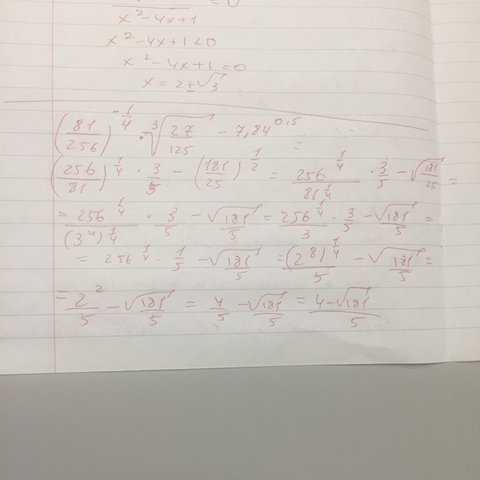 x² - 4x + 1
x² - 4x + 1 < 0
x² - 4x + 1 = 0
x = 2 ± √3
(81/256)^(-1/4) · ∛(27/125) - 7,84^0,5 =
(256/81)^(1/4) · 3/5 - (181/25)^(1/2) = 256^(1/4)/81^(1/4) · 3/5 - √(181/25) =
= 256^(1/4)/(3⁴)^(1/4) · 3/5 - √181/5 = 256^(1/4)/3 · 3/5 - √181/5 =
= 256^(1/4) · 1/5 - √181/5 = (2⁸)^(1/4)/5 - √181/5 =
= 2²/5 - √181/5 = 4/5 - √181/5 = (4 - √181)/5